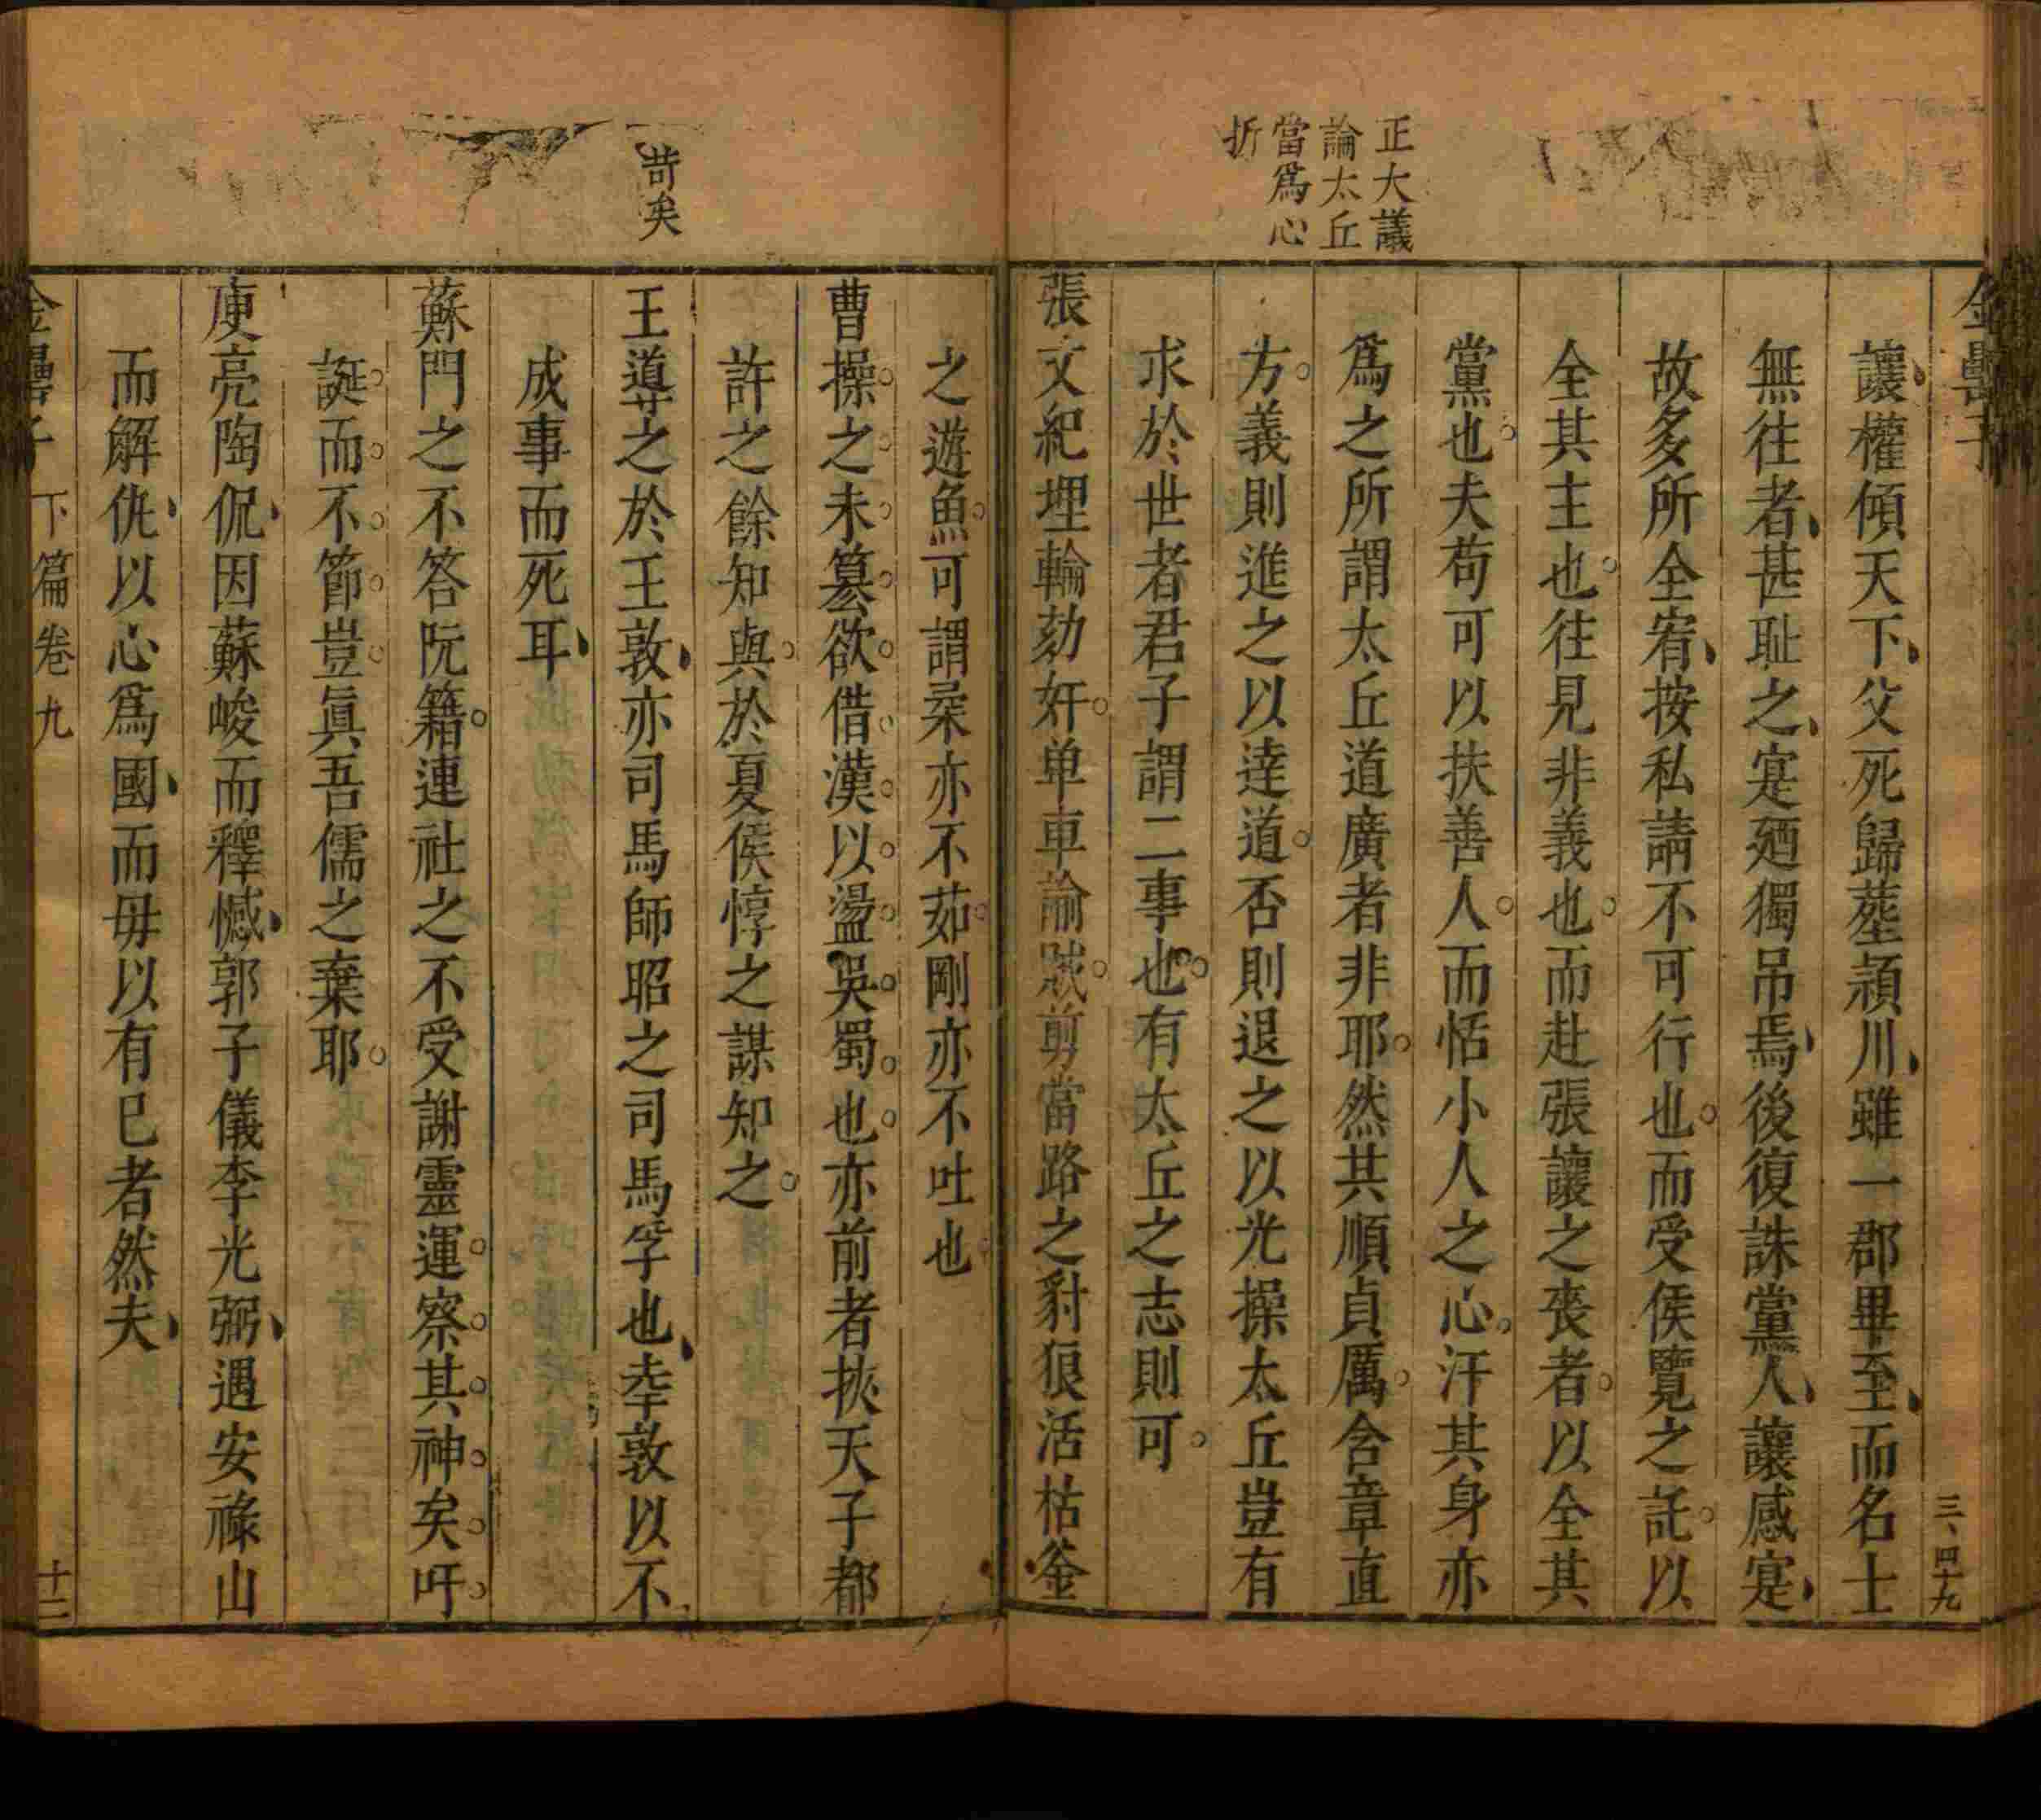 金罍子
三、四十九
正大議
論太丘
當爲心
折
讓權傾天下父死歸塟頴川雖一郡畢至而名士
無往者甚耻之寔廼獨吊焉後復誅黨人讓感寔
故多所全宥按私請不可行也而受侯覽之託以
全其主也往見非義也而赴張讓之喪者以全其
黨也夫苟可以扶善人而恬小人之心汗其身亦
爲之所謂太丘道廣者非耶然其順貞厲含章直
方義則進之以逹道否則退之以光操太丘豈有
求於世者君子謂二事也有太丘之志則可
張文紀埋輪劾奸单車諭賊剪當路之豺狼活枯釜
苛矣
之遊魚可謂柔亦不茹剛亦不吐也
曹操之未篡欲借漢以盪吳蜀也亦前者挾天子都
許之餘知與於夏侯惇之謀知之
王導之於王敦亦司馬師昭之司馬孚也幸敦以不
成事而死耳
蘇門之不答阮籍連社之不受謝靈運察其神矣吁
誕而不節豈眞吾儒之棄耶
庾亮陶侃因蘇峻而釋憾郭子儀李光弼遇安祿山
而解仇以心爲國而毋以有已者然夫
金罍子 下篇卷九 十二